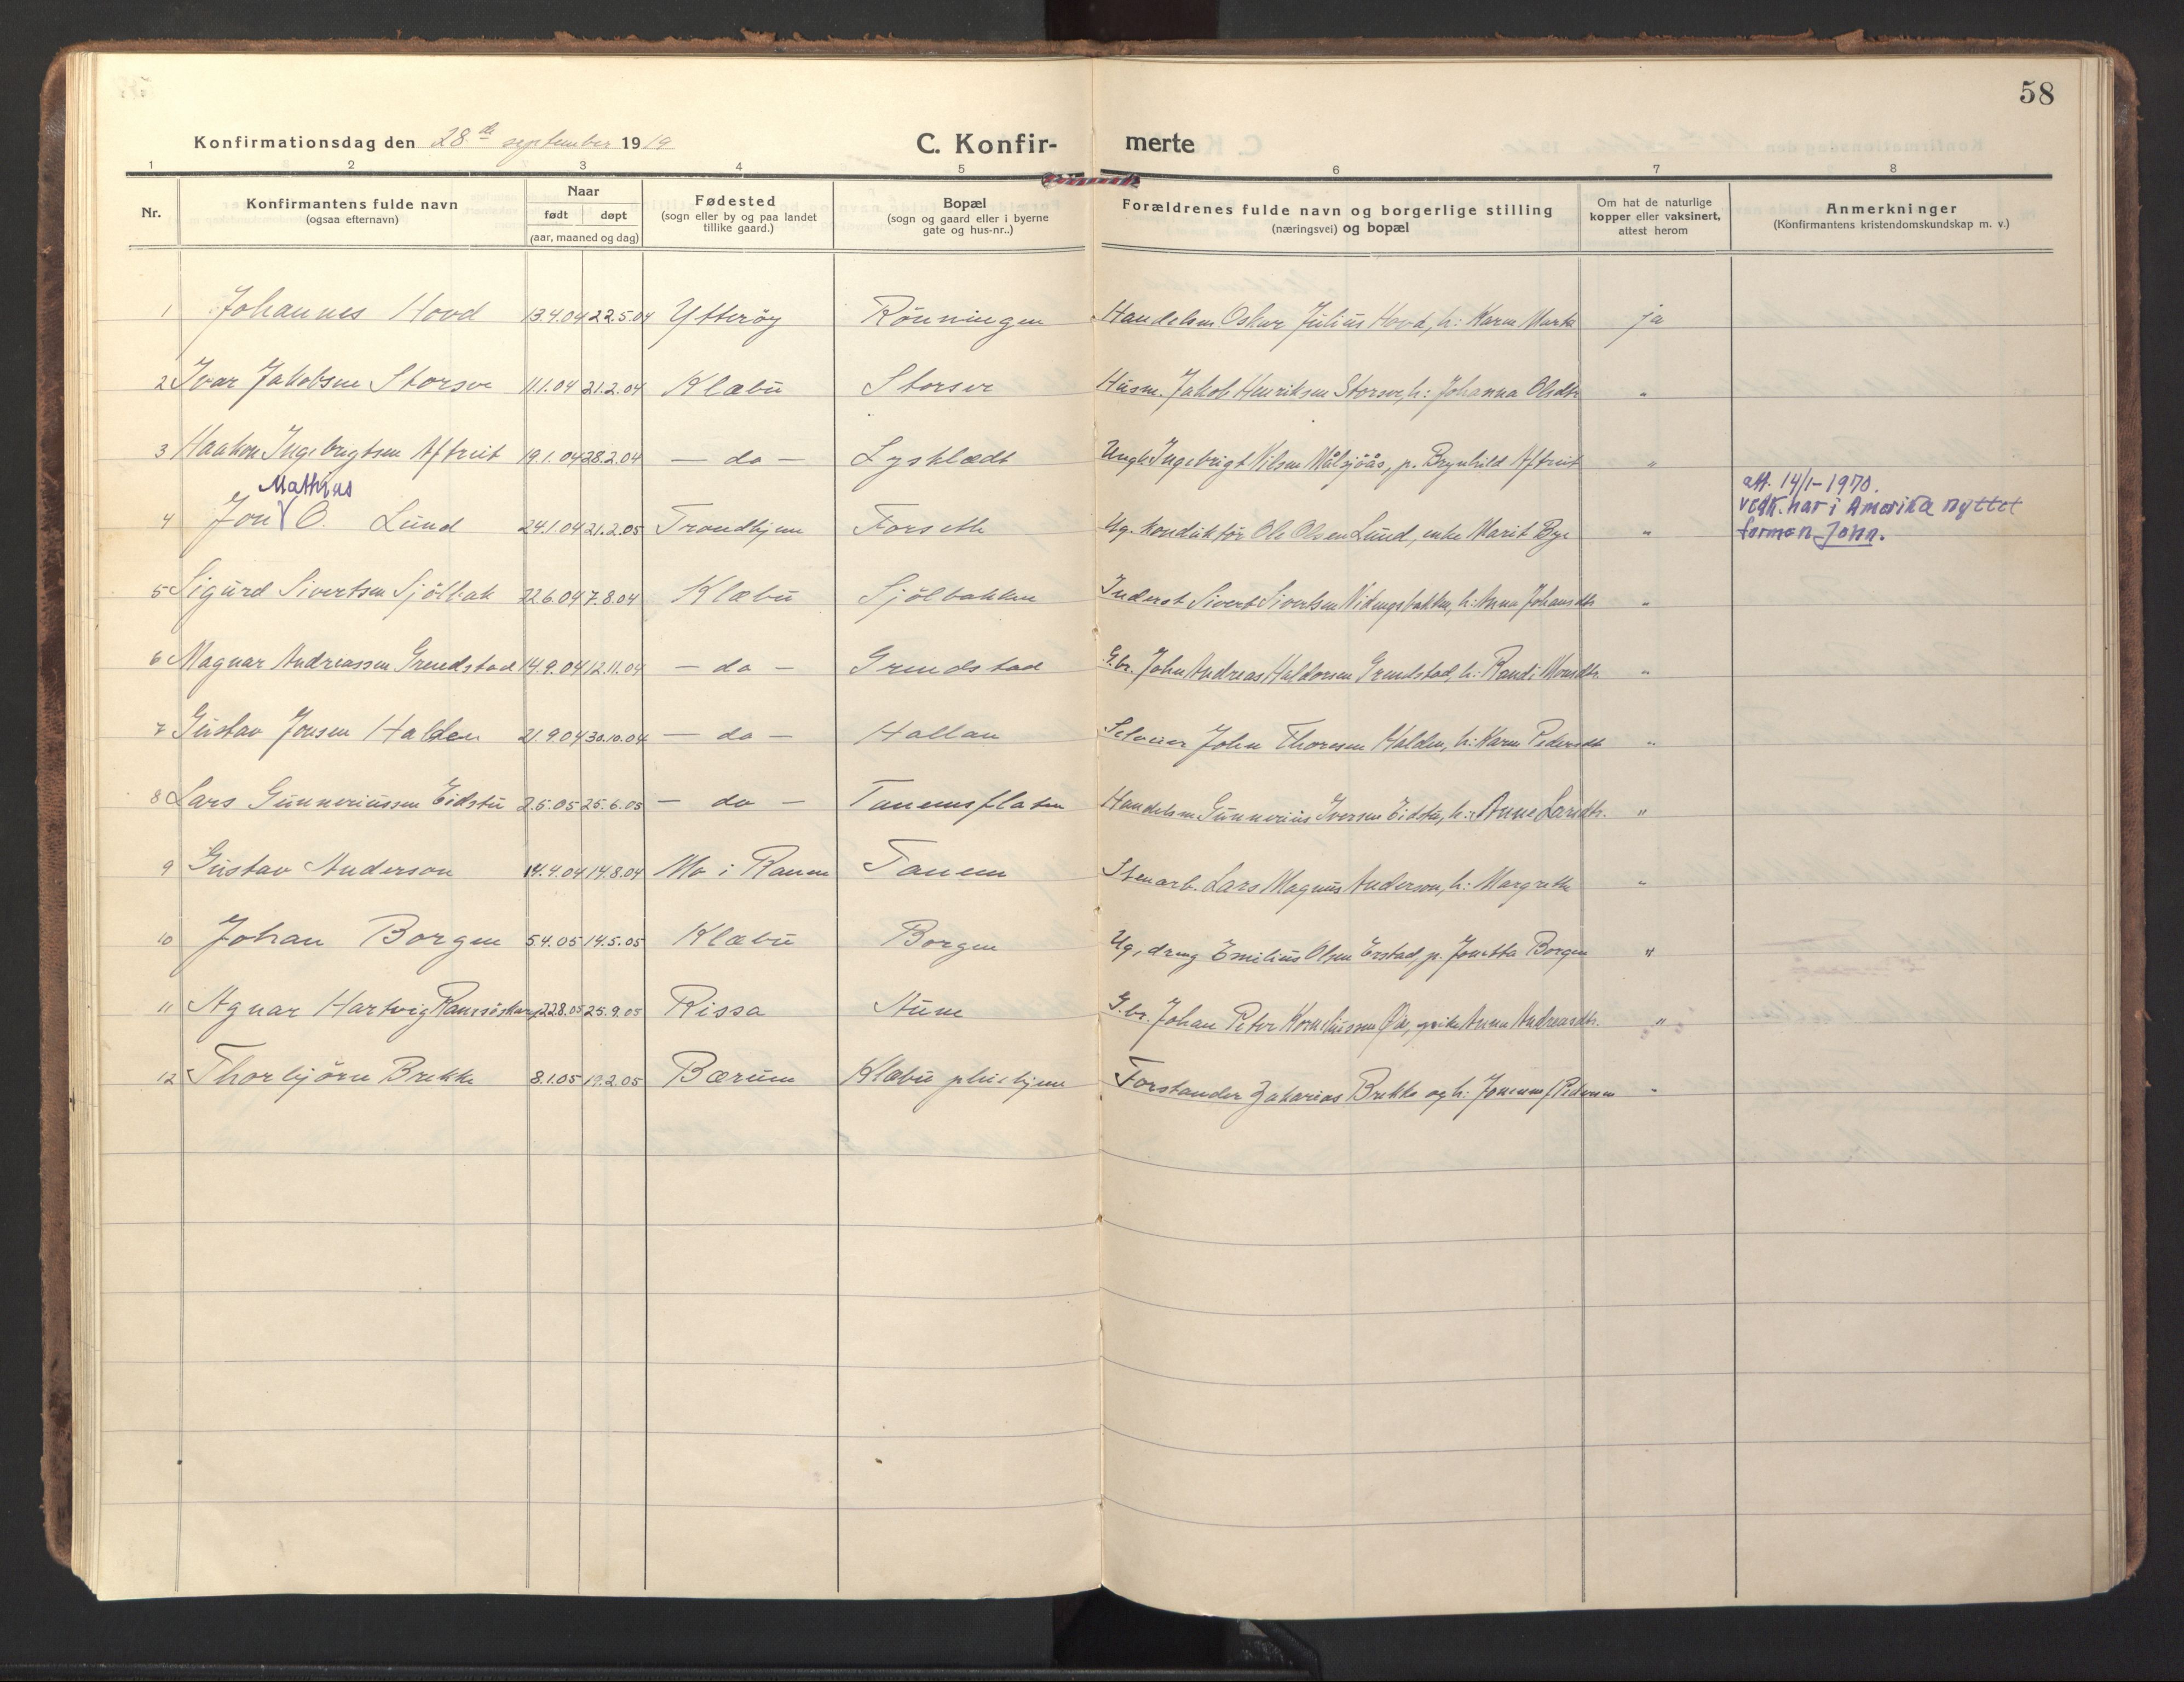 58
Konfirmationsdag den 28de september 1919 C. Konfir- merte
1 2 3 4 5 6 7 8
Nr. Konfirmantens fulde navn (ogsaa efternavn) Naar født døpt (aar, maaned og dag) Fødested (sogn eller by og paa landet tillike gaard.) Bopæl (sogn og gaard eller i byerne gate og hus-nr..) Forældrenes fulde navn og borgerlige stilling (næringsvei) og bopæl Om hat de naturlige kopper eller vaksinert, attest herom Anmerkninger (Konfirmantens kristendomskundskap m. v.)
1 Johannes Hovd 13.4.04 22.5.04 Ytterøy Rönningen Handelsm. Oskar Julius Hovd, h: Karen Marta ja
2 Ivar Jakobsen Storsve 11.1.04 21.2.04 Klæbu Storsve Husm. Jakob Henriksen Storsve, h: Johanna Olsdtr "
3 Haakon Ingebrigtsen Aftreit 19.1.04 28.2.04 — do — Lysklædt Ungk. Ingebrigt Nilsen Målsjöås, p. Brynhild Aftreit "
Mathias
4 Jon V O. Lund 24.1.04 21.2.05 Trondhjem Forseth Ug. konduktör Ole Olsen Lund, enke Marit Bye "
att. 14/1-1970.
vedk. har i Amerika nyttet
formen John.
5 Sigurd Sivertsen Sjölbak 22.6.04 7.8.04 Klæbu Sjölbakken Inderst Sivert Sivertsen Nidengsbakken, h: Anna Johansdtr "
6 Magnar Andreassen Grendstad 14.9.04 12.11.04 — do — Grendstad G.br. John Andreas Haldorsen Grendstad, h: Randi Monsdtr. "
7 Gustav Jonsen Halden 21.9.04 30.10.04 — do — Hallan Selveier John Thoresen Halden, h: Karen Pedersdtr "
8 Lars Gunneriussen Eidstu 2.5.05 25.6.05 — do — Tanemsflaten Handelsm. Gunnerius Iversen Eidstu, h: Anne Larsdtr. "
9 Gustav Anderson 14.4.04 14.8.04 Mo i Ranen Tanem Stenarb. Lars Magnus Anderson, h: Margrethe "
10 Johan Borgen 5.4.05 14.5.05 Klæbu Borgen Ug. dreng Emilius Olsen Erstad, p. Jonetta Borgen "
11 Agnar Hartvig Ramsöskar 22.8.05 25.9.05 Rissa Aune G.br. Johan Peter Korneliussen Öie, pike Anna Andreasdtr. "
12 Thorbjörn Brekke 8.1.05 19.2.05 Bærum Klæbu pleiehjem Forstander Zakarias Brekke og h: f. Pedersen "